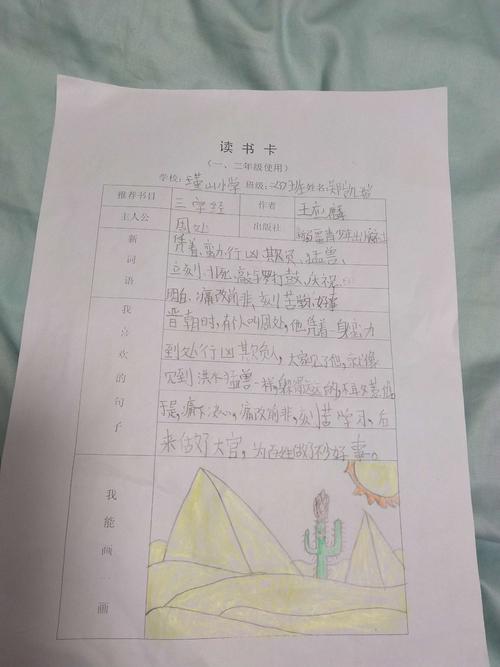 读书卡
(一、二年级使用)
学校:璜山小学 班级: 班 姓名:郑凯
推荐书目 三字经 作者 王应麟
主人公 周处 出版社
新词语
凭着、蛮力、行凶、欺负、猛兽、
立刻、敲锣打鼓、庆祝、
明白、痛改前非、刻苦、好事
我喜欢的句子
晋朝时,有个人叫周处,他凭着一身蛮力
到处行凶欺负人,大家见了他,就像
见到洪水猛兽一样,躲得远远的
于是,痛下决心,痛改前非,刻苦学习,后
来做了大官,为百姓做了不少好事。
我能画一画